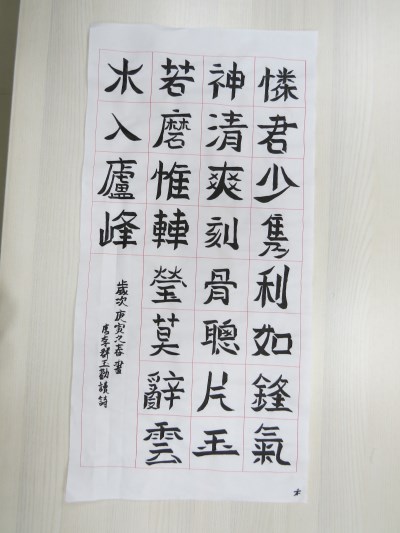 憐君少雋利如鏠氣
神清爽刻骨聰片玉
若磨惟轉瑩莫辭雲
水入廬峰
歲次庚寅之春書
唐李群玉勸讀詩